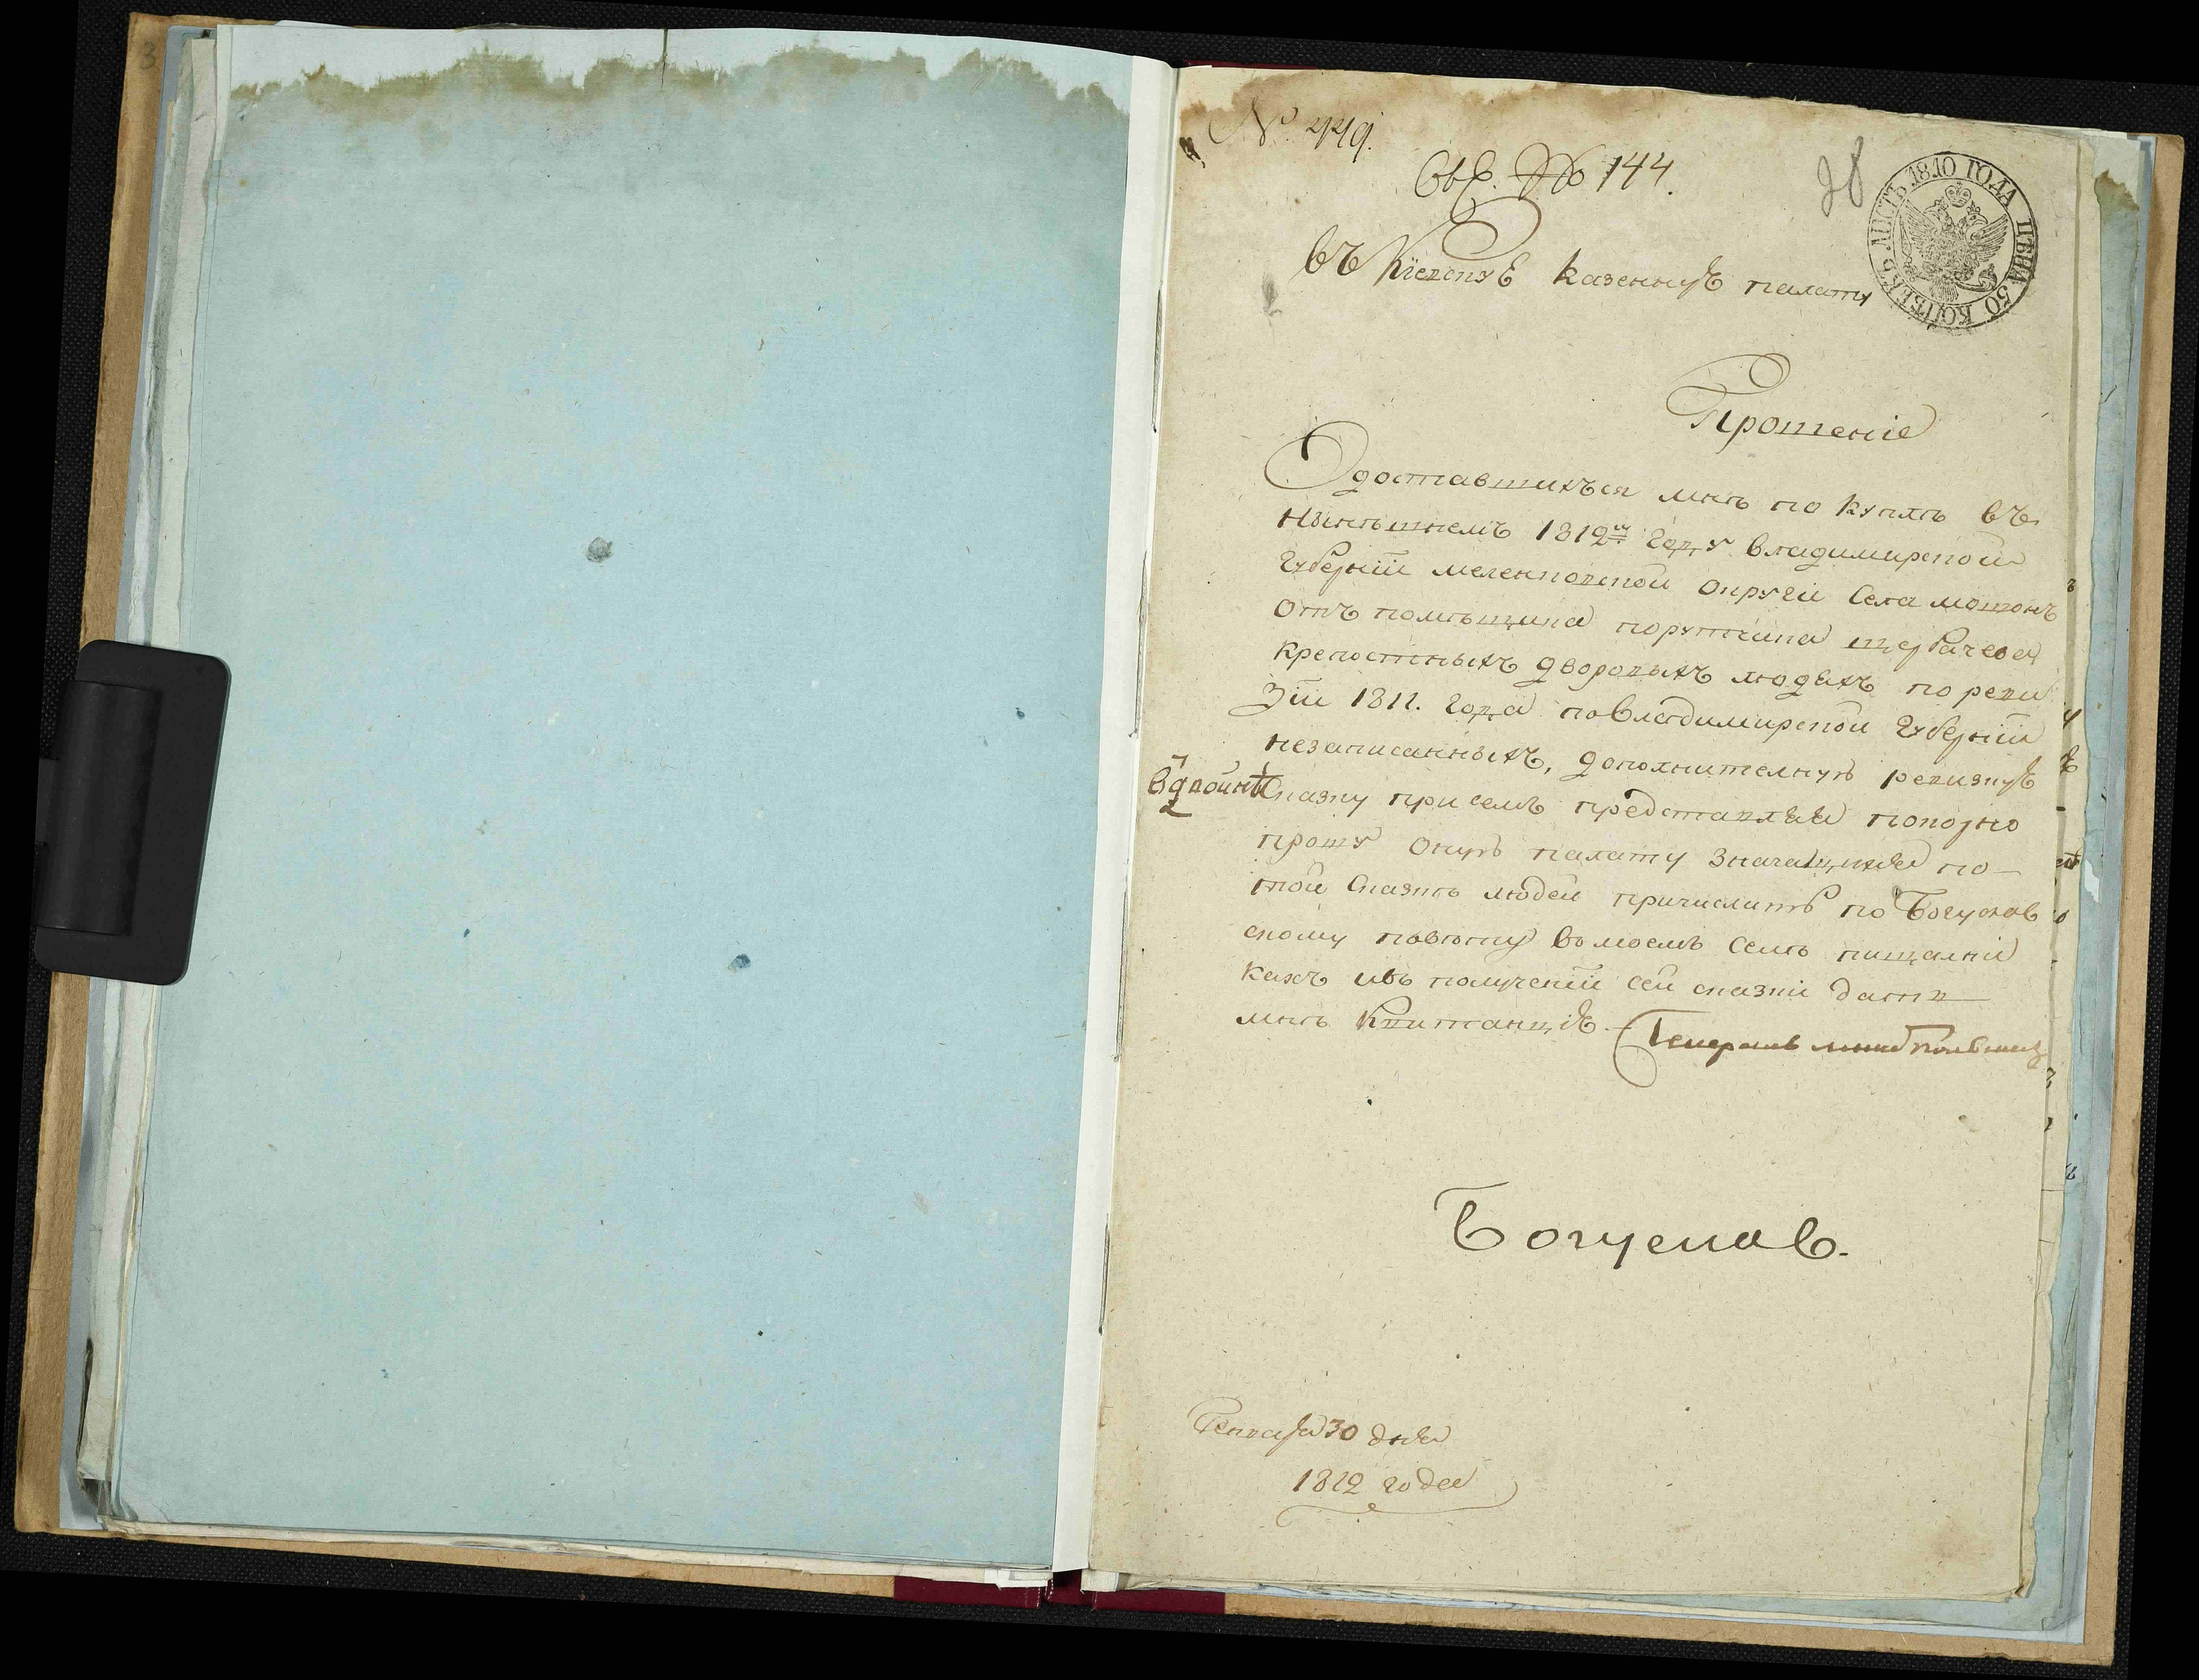 3
№ 449.
№ 144.
28
ЛИСТЪ 1810 ГОДА ЦѢНА 50 КОПѢЕКЪ
въ Кіевскую казенную палату
Прошеніе
О доставшихъся мнѣ по купле въ
нынѣшнемъ 1812м году владимирской
губерніи меленковской округи села мошокъ
отъ помѣщика порутчика щербачева
крепостныхъ дворовыхъ людехъ по реви
зіи 1811. года повладимирской губерніи
незаписанныхъ, дополнителную ревизкую
вдвойнѣ
сказку при семъ представляя покорно
прошу оную палату значащихся по
той сказкѣ людей причислить по Богуслав
скому повѣту въ моемъ селѣ пищални
кахъ и въ полученіи сей сказки дать
мнѣ квитанцію.
Генералъ
Богуслав.
Генваря 30 дня
1812 года